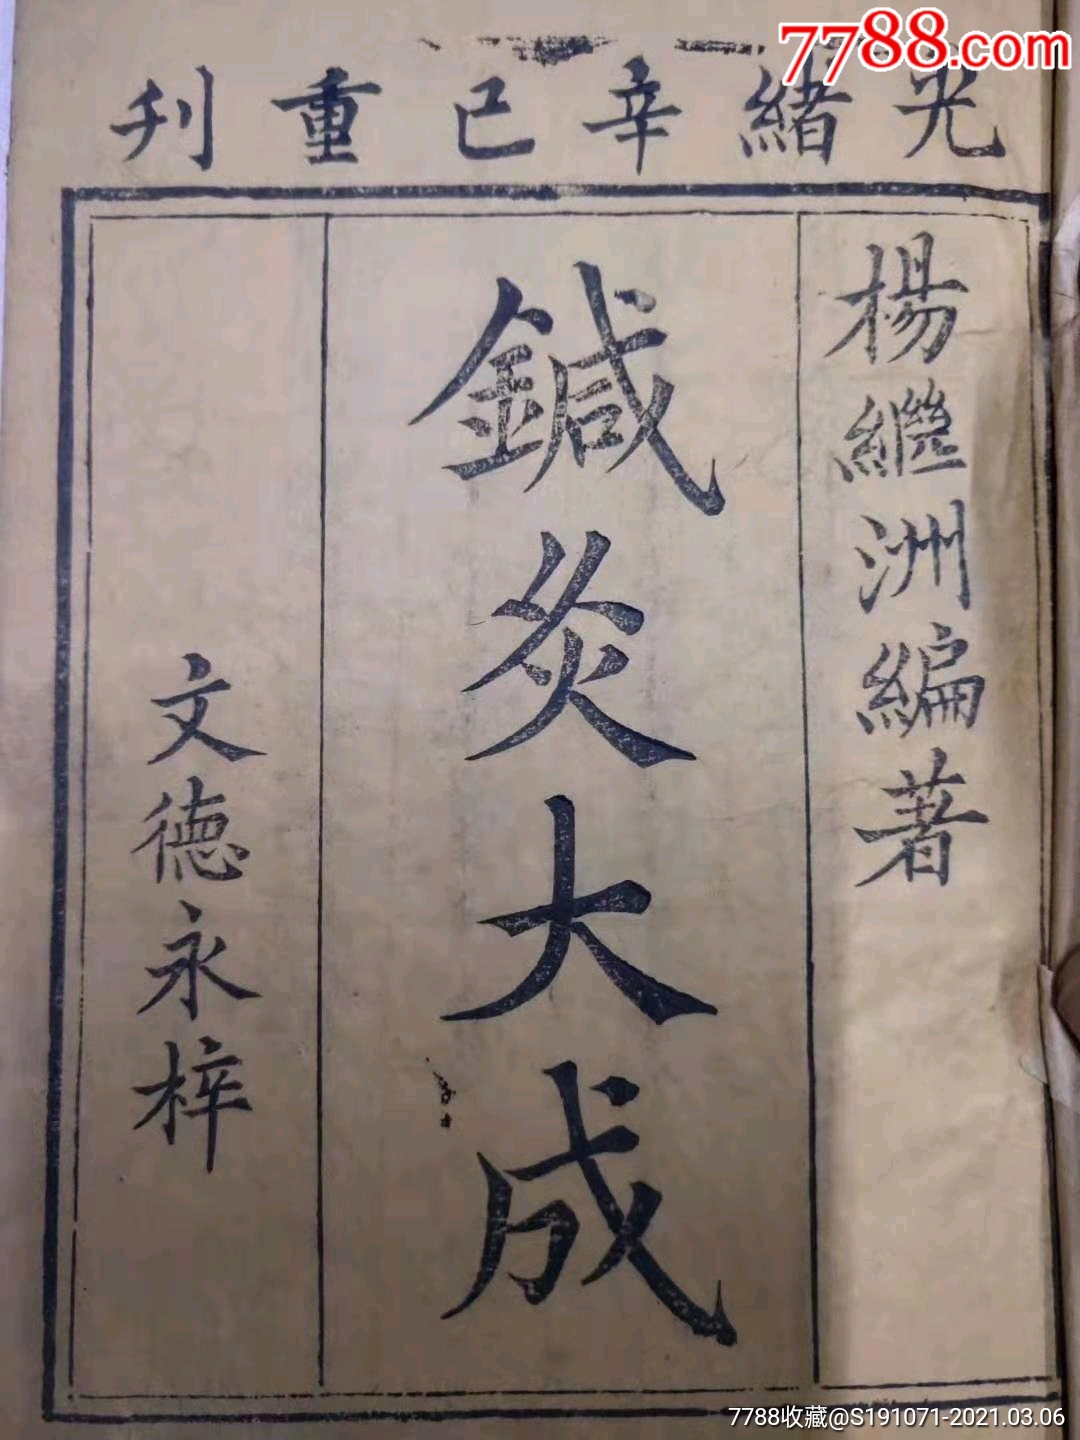 7788.com
光緒辛巳重刋
楊繼洲編著
鍼灸大成
文德永梓
7788收藏@S191071-2021.03.06